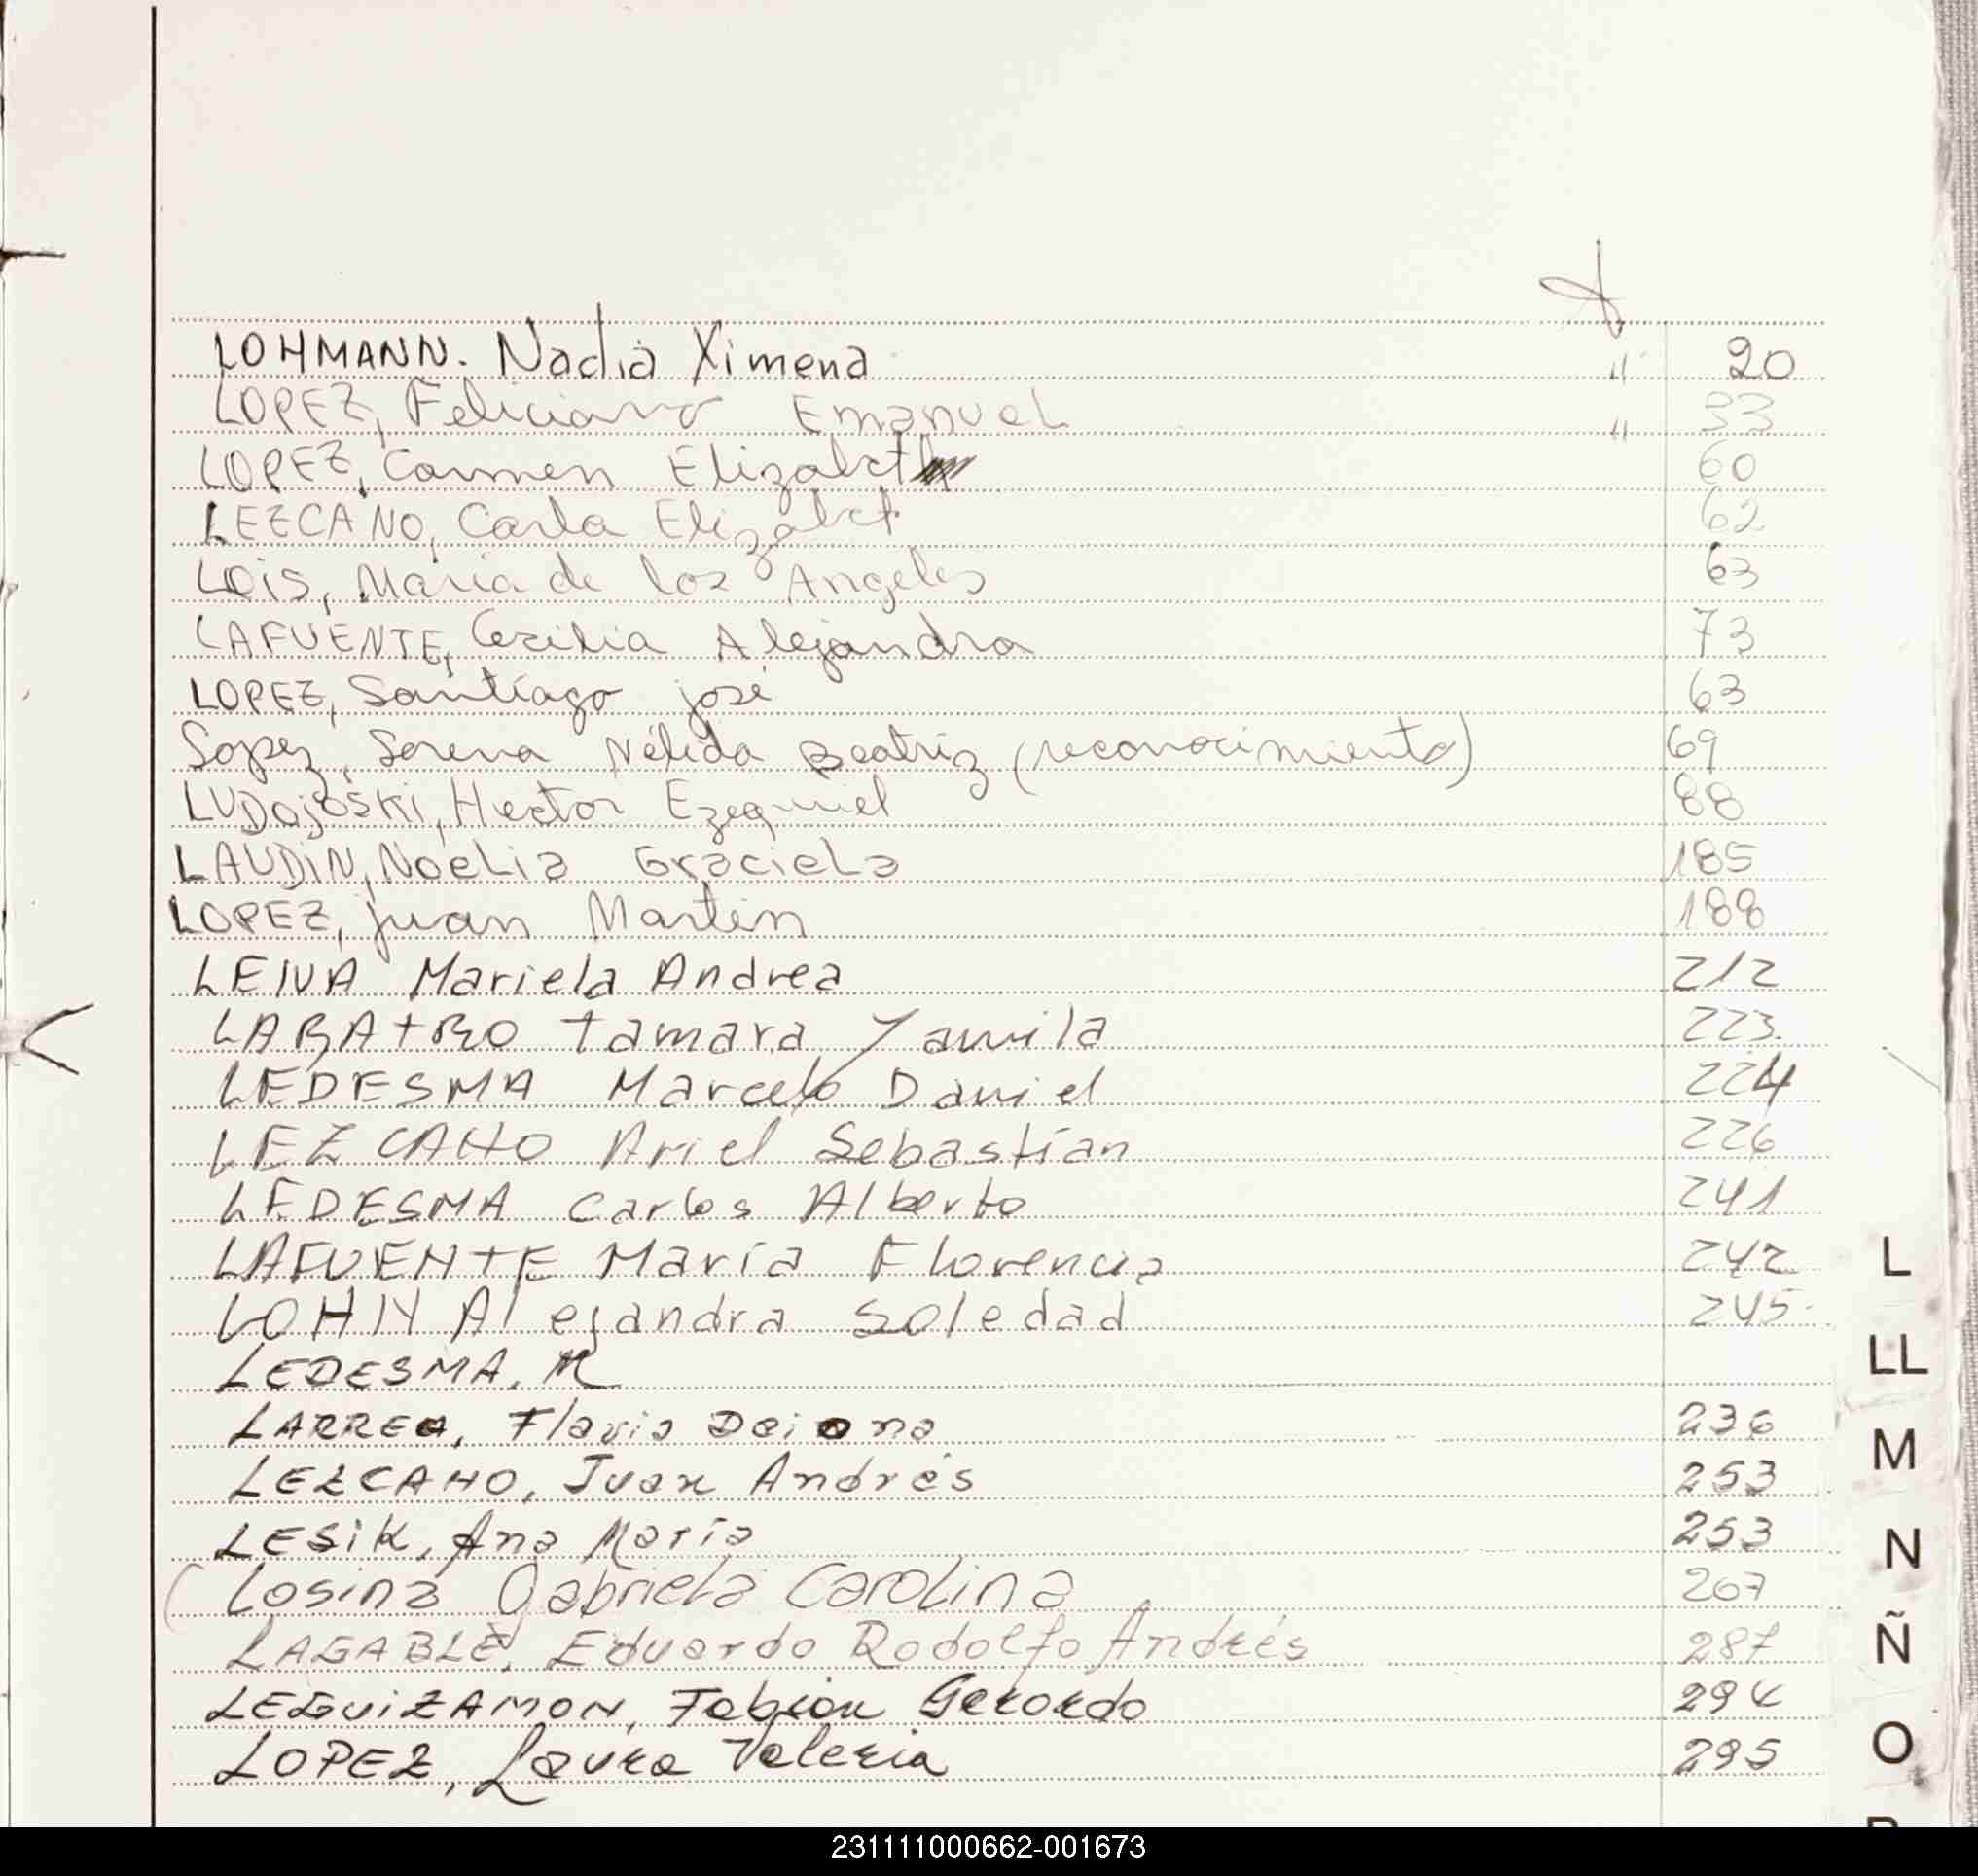 LOHMANN. Nadia Ximena " 20
LOPEZ, Feliciano Emanuel " 33
LOPEZ, Carmen Elizabet 60
LEZCANO, Carla Elizabet 62
Lois, Maria de los Angeles 63
LAFUENTE, Cecilia Alejandra 73
LOPEZ, Santiago josé 63
Lopez, Lorena Nélida Beatriz (reconocimiento) 69
LUDojoski, Hector Ezequiel 88
LAUDIN, Noelia Graciela 185
LOPEZ, juan Martin 188
LEIVA Mariela Andrea 212
LABATRO tamara Yamila 223.
LEDESMA Marcelo Daniel 224
LEZCANO Ariel Sebastían 226
LEDESMA Carlos Alberto 241
LAFUENTE María Florencia 242
LOHN Alejandra Soledad 245.
LEDESMA, M
LARREA, Flavia Daiana 236
LEZCANO, Juan Andrés 253
LESiK, Ana María 253
(Losina Gabriela Carolina 267
LAGABLE, Eduardo Rodolfo Andrés 287
LEGUiZAMON, Fabian Gerardo 294
LOPEZ, Laura Valeria 295
L
LL
M
N
Ñ
O
231111000662-001673